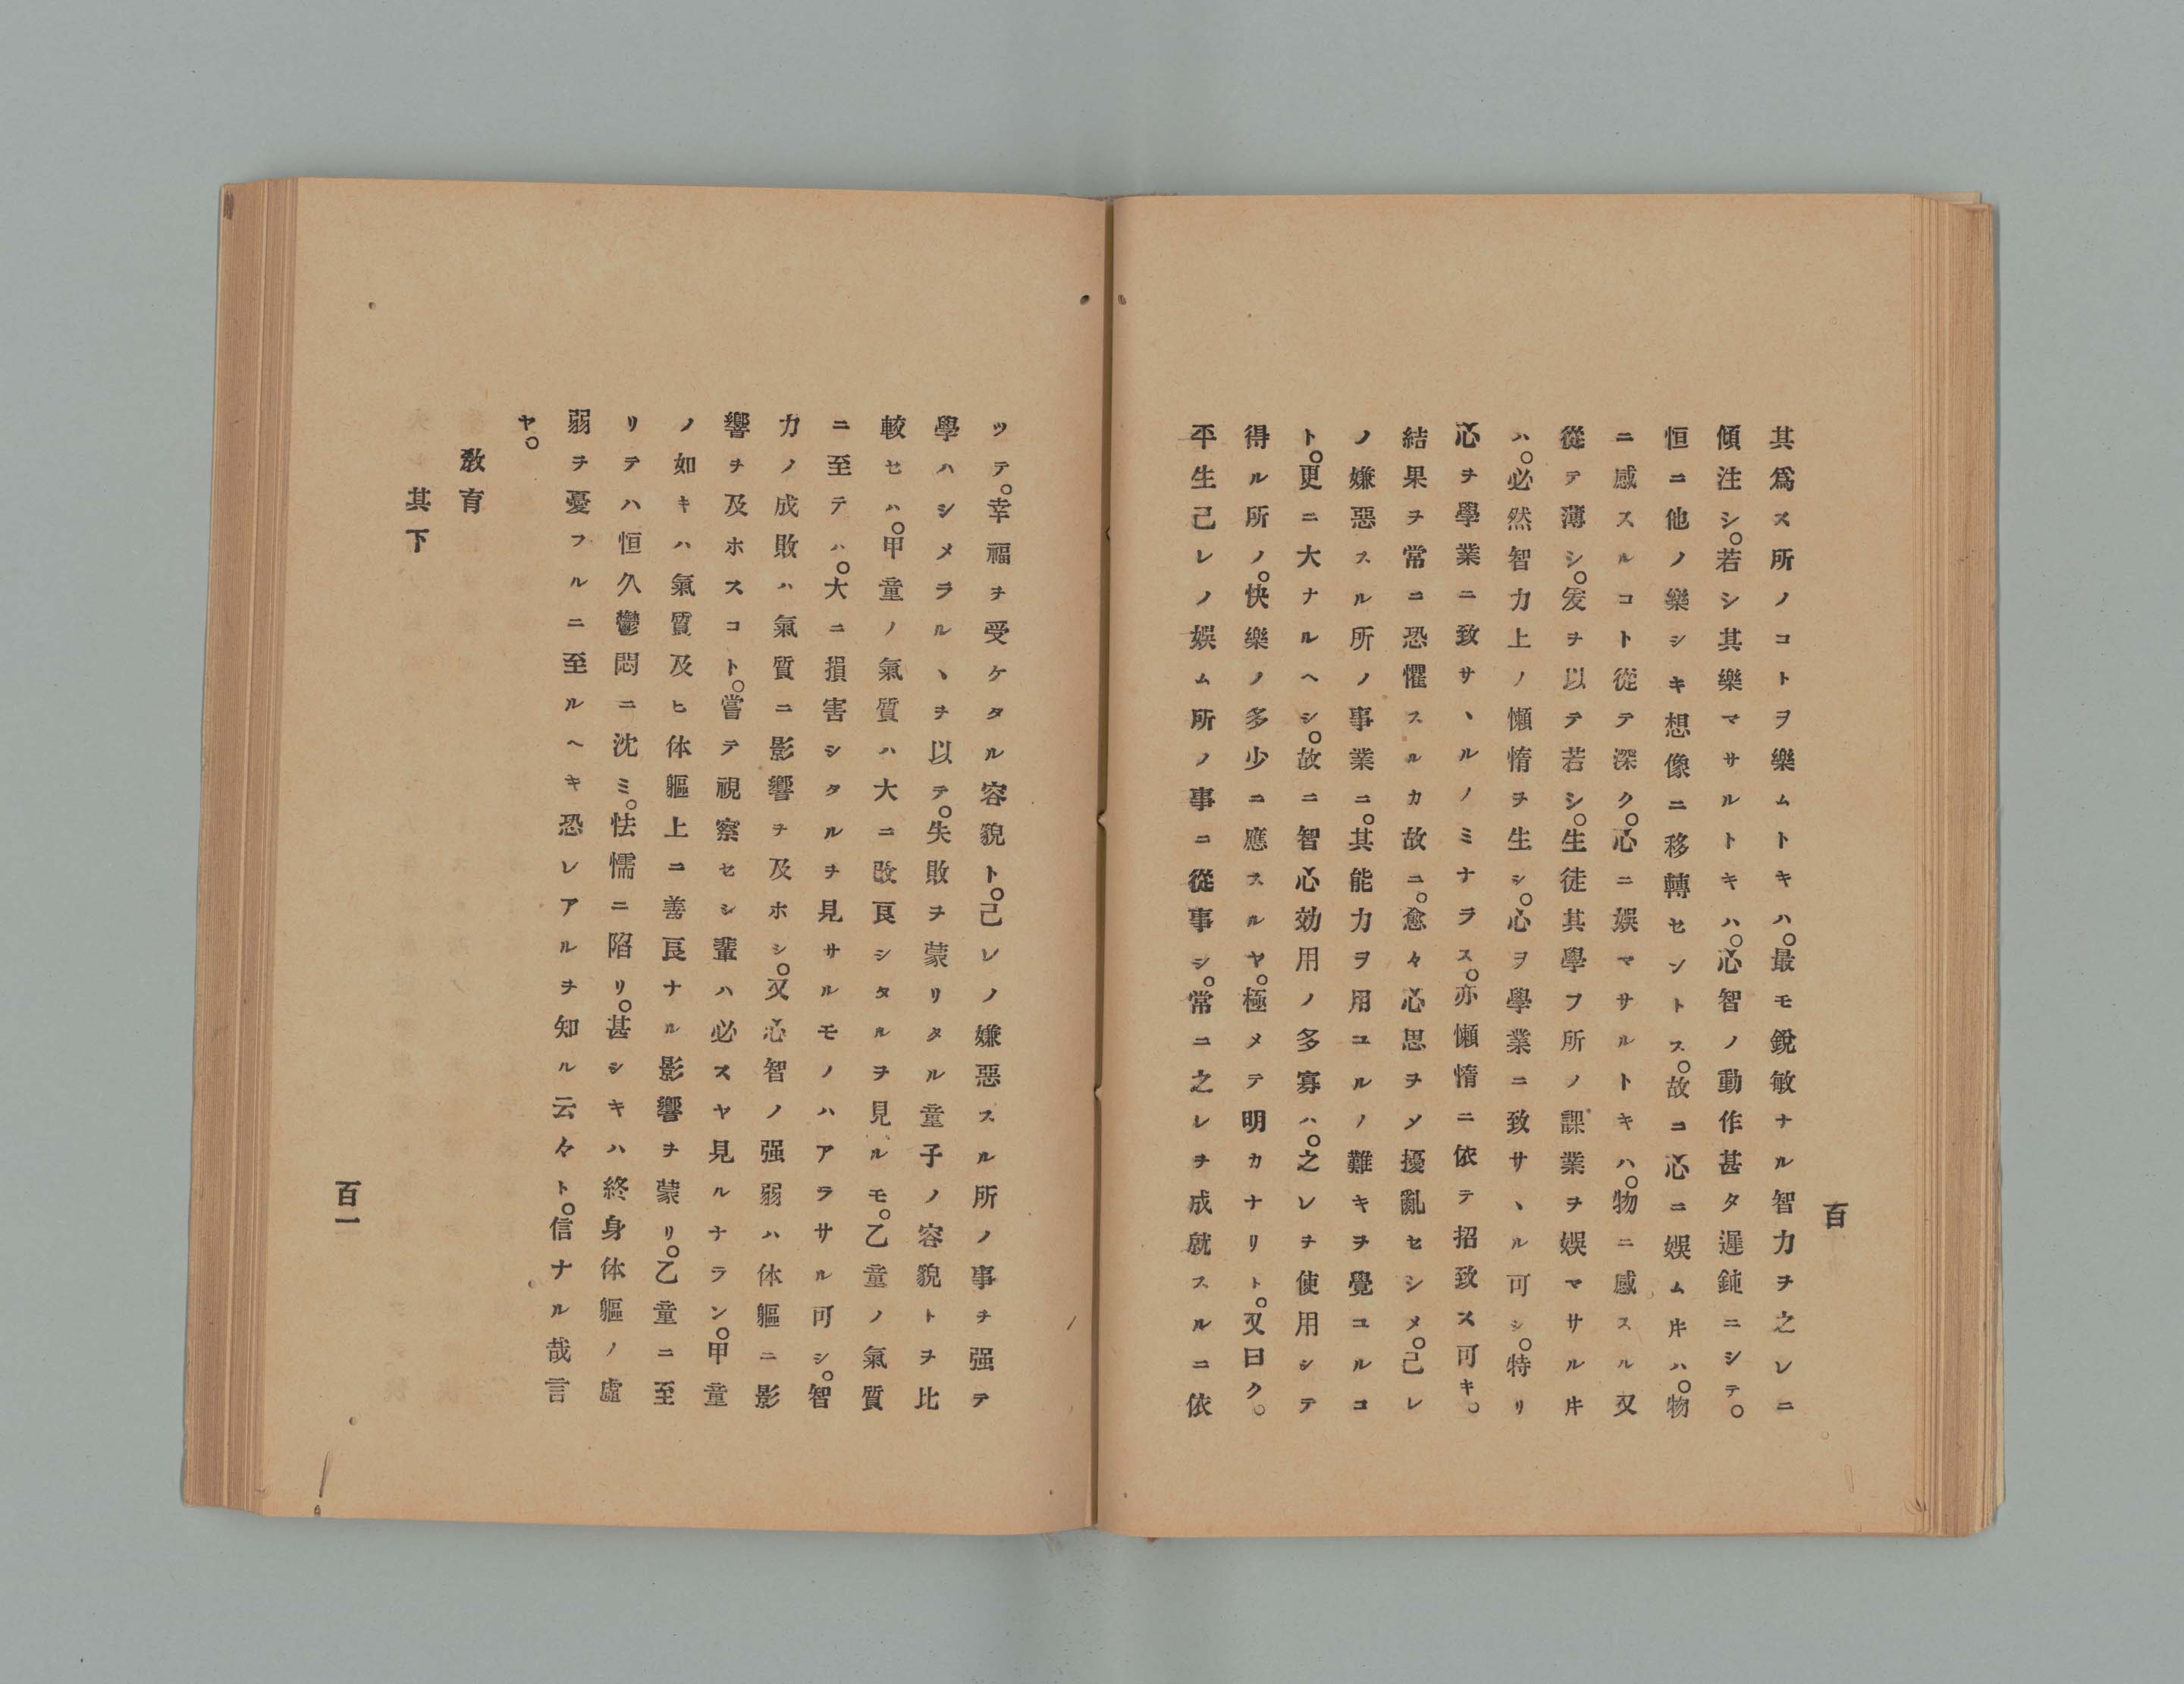 其爲ス所ノコトヲ樂ムトキハ。最モ銳敏ナル智力ヲ之レニ
傾注シ。若シ其樂マサルトキハ。心智ノ動作甚タ遲鈍ニシテ。
恒ニ他ノ樂シキ想像ニ移轉セントス。故ニ心ニ娯ムㇳキハ。物
ニ感スルコト從テ深ク。心ニ娯マサルトキハ。物ニ感スル又
從テ薄シ。爰ヲ以テ若シ。生徒其學フ所ノ課業ヲ娯マサルㇳキ
ハ。必然智力上ノ懶惰ヲ生シ。心ヲ學業ニ致サヽル可シ。特リ
心ヲ學業ニ致サヽルノミナラス。亦懶惰ニ依テ招致ス可キ。
結果ヲ常ニ恐懼スルカ故ニ。愈々心思ヲシテ擾亂セシメ。己レ
ノ嫌惡スル所ノ事業ニ。其能力ヲ用ユルノ難キヲ覺ユルコ
ト。更ニ大ナルヘシ。故ニ智心効用ノ多寡ハ。之レヲ使用シテ
得ル所ノ。快樂ノ多少ニ應スルヤ。極メテ明カナリト。又曰ク。
平生己レノ娯ム所ノ事ニ從事シ。常ニ之レヲ成就スルニ依
百
ツテ。幸福ヲ受ケタル容貌ト。己レノ嫌惡スル所ノ事ヲ强テ
學ハシメラルヽヲ以テ。失敗ヲ蒙リタル童子ノ容貌トヲ比
較セハ。甲童ノ氣質ハ大ニ改良シタルヲ見ルモ。乙童ノ氣質
ニ至テハ。大ニ損害シタルヲ見サルモノハアラサル可シ。智
力ノ成敗ハ氣質ニ影響ヲ及ホシ。又心智ノ强弱ハ体軀ニ影
響ヲ及ホスコト。嘗テ視察セシ輩ハ必スヤ見ルナラン。甲童
ノ如キハ氣質及ヒ体軀上ニ善良ナル影響ヲ蒙リ。乙童ニ至
リテハ恒久鬱悶ニ沈ミ。怯懦ニ陷リ。甚シキハ終身体軀ノ虛
弱ヲ憂フルニ至ルヘキ恐レアルヲ知ル云々ト。信ナル哉言
ヤ。
敎育
其下
百一